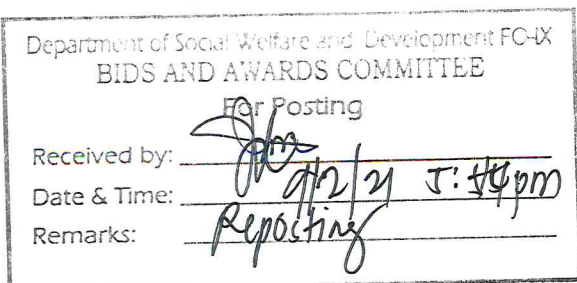 Department of Social Welfare and Development FO-IX
BIDS AND AWARDS COMMITTEE
For Posting
Received by:
Date & Time: 9/2/21 5: pm
Remarks: Reposting